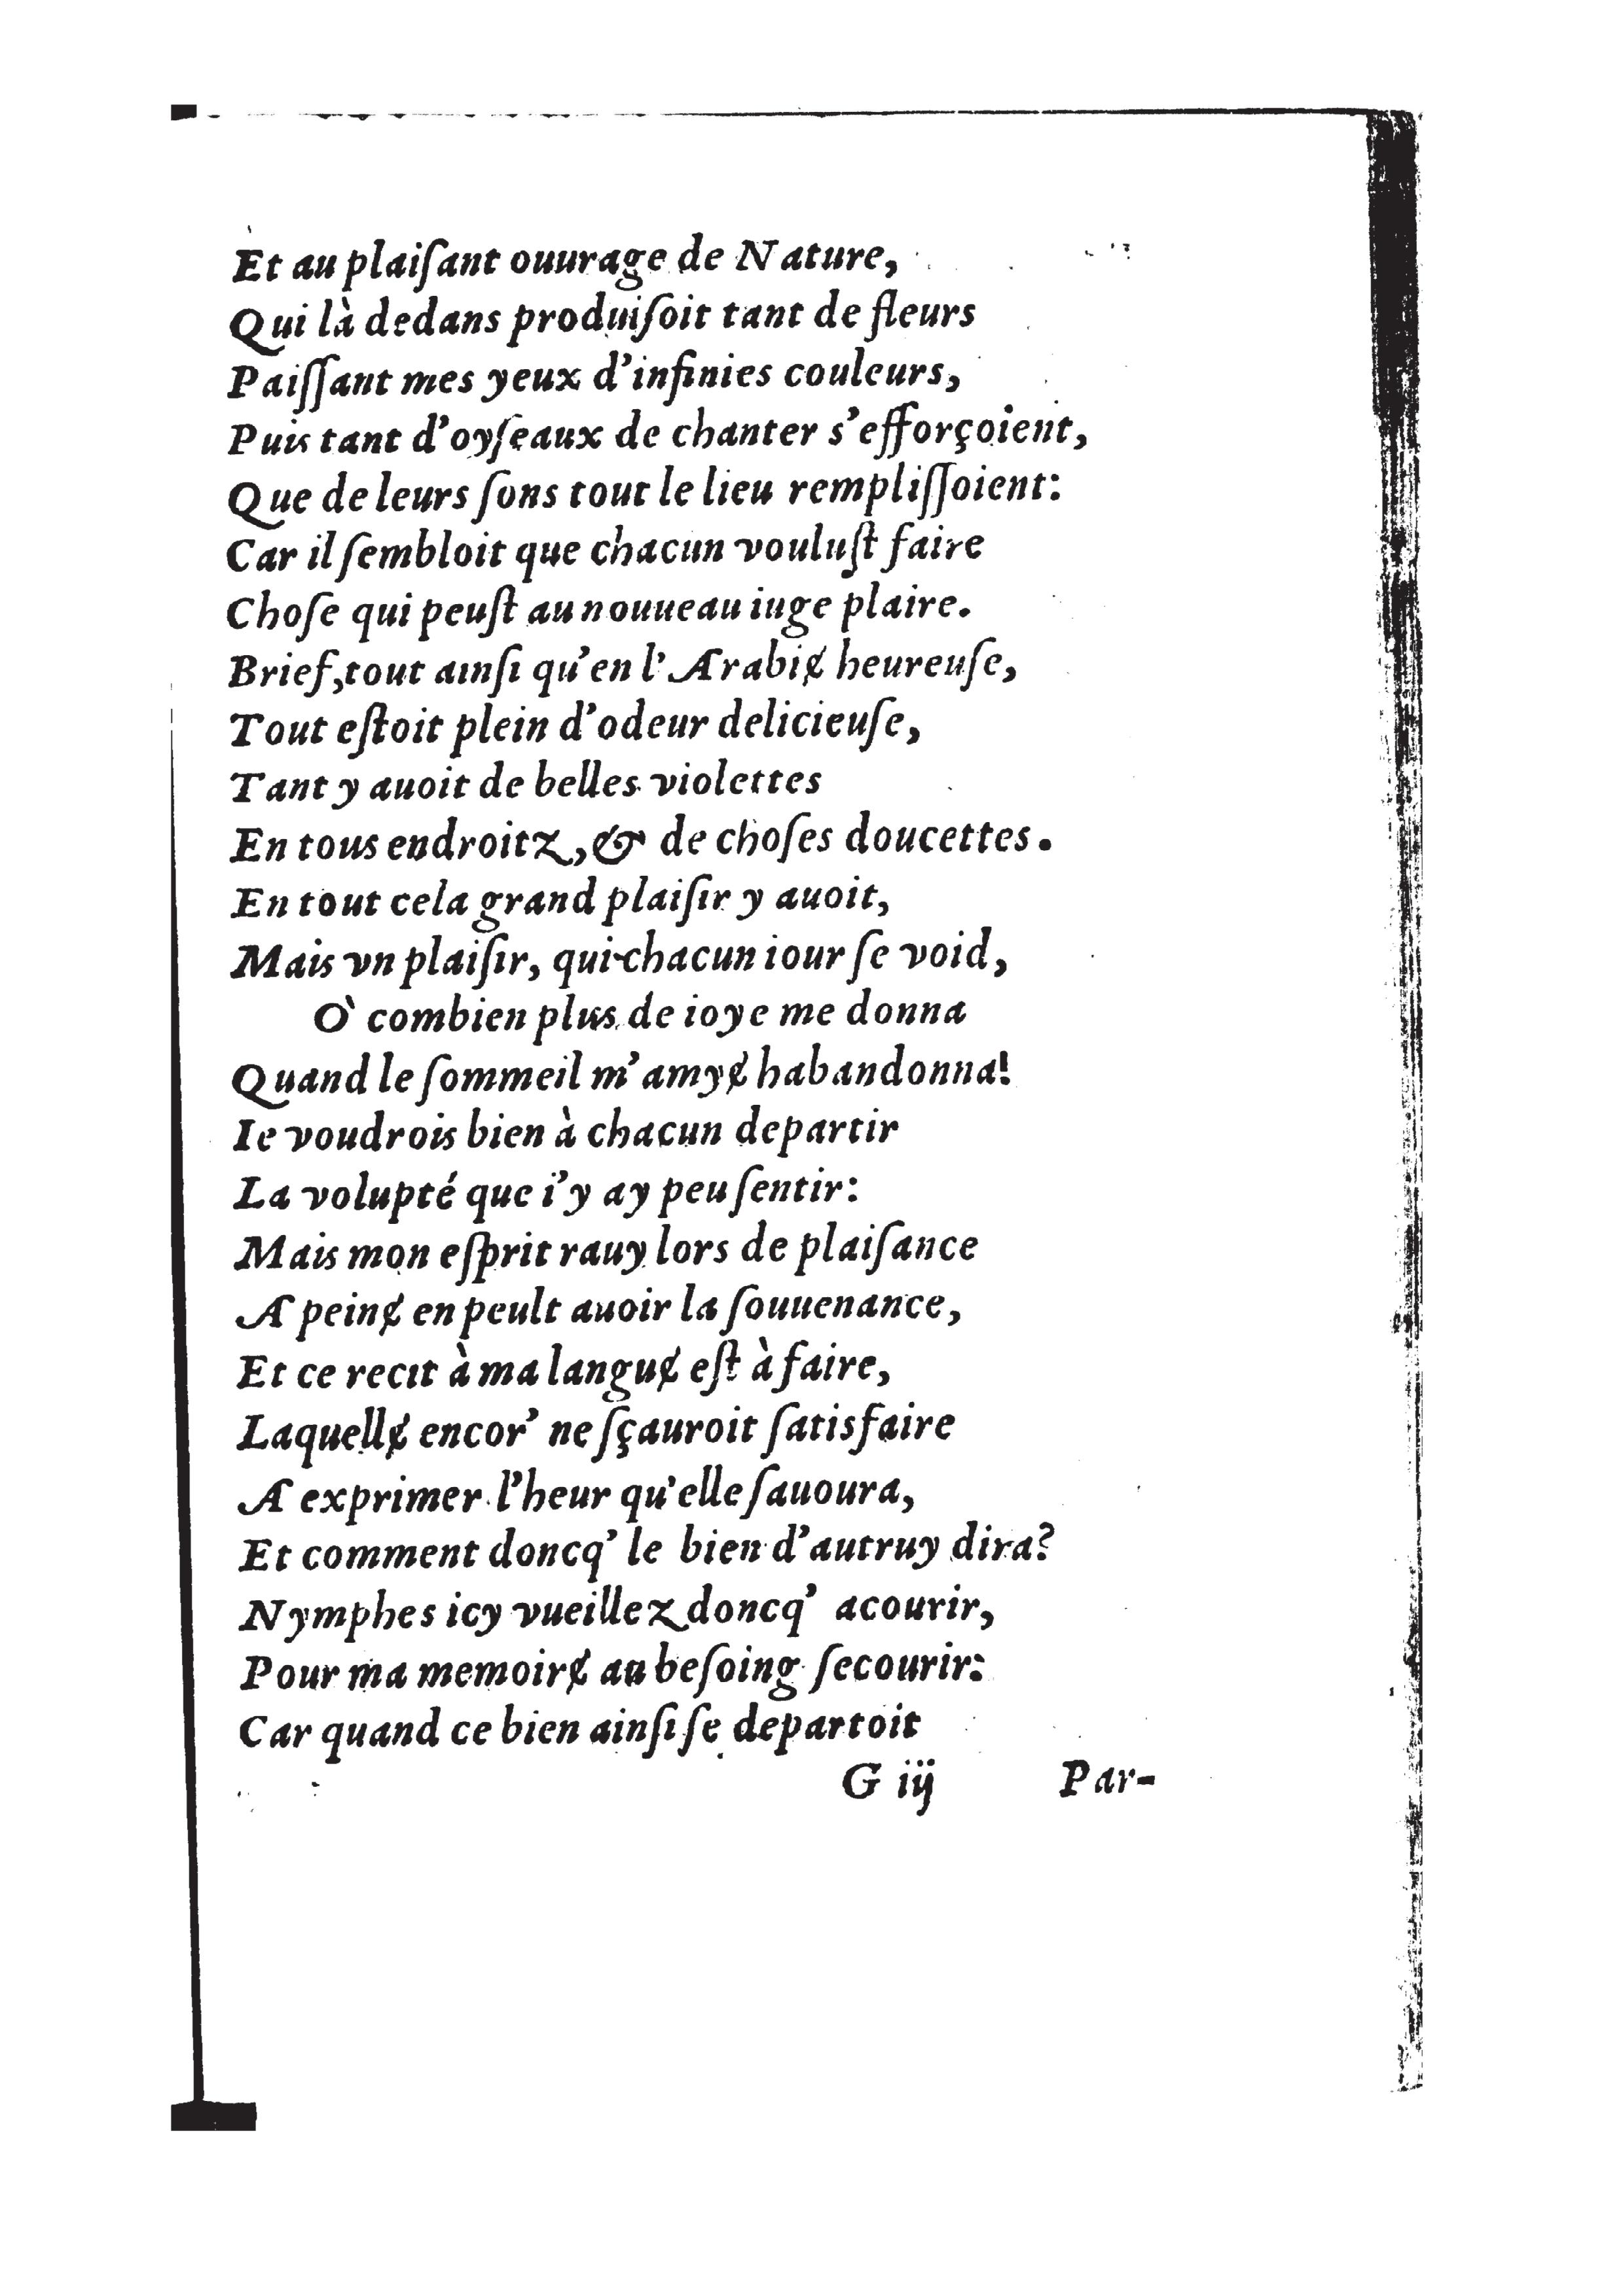 Et au plaiſant ouurage de Nature,
Qui là dedans produiſoit tant de fleurs
Paiſſant mes yeux d'infinies couleurs,
Puis tant d'oyſeaux de chanter s'efforçoient,
Que de leurs ſons tout le lieu rempliſſoient:
Car il ſembloit que chacun vouluſt faire
Choſe qui peuſt au nouueau iuge plaire.
Brief, tout ainſi qu'en l'Arabiɇ heureuſe,
Tout eſtoit plein d'odeur delicieuſe,
Tant y auoit de belles violettes
En tous endroitz, & de choſes doucettes.
En tout cela grand plaiſir y auoit,
Mais vn plaiſir, qui chacun iour ſe void,
Ò combien plus de ioye me donna
Quand le ſommeil m'amyɇ habandonna!
Ie voudrois bien à chacun departir
La volupté que i'y ay peu ſentir:
Mais mon eſprit rauy lors de plaiſance
A peinɇ en peult auoir la ſouuenance,
Et ce recit à ma languɇ eſt à faire,
Laquellɇ encor' ne ſçauroit ſatisfaire
A exprimer l'heur qu'elle ſauoura,
Et comment doncq' le bien d'autruy dira?
Nymphes icy vueillez doncq' acourir,
Pour ma memoirɇ au beſoing ſecourir:
Car quand ce bien ainſi ſe departoit
G iij Par-